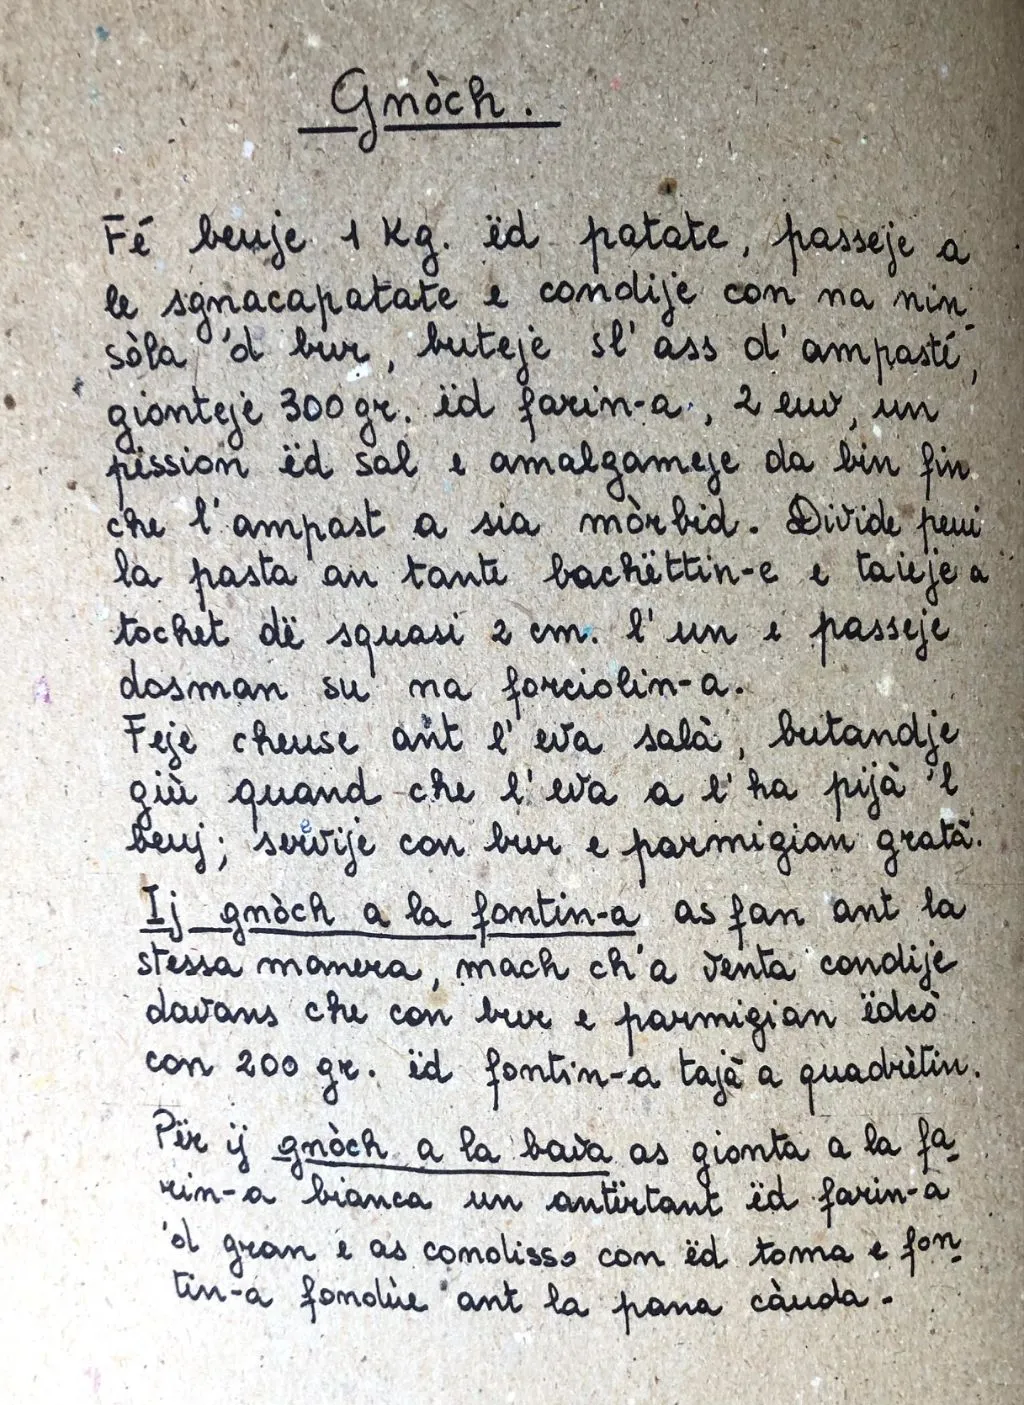 Gnòch.
Fé beuje 1 Kg. ëd patate, passeje a
le sgnacapatate e condije con na nin-
sòla 'd bur, buteje sl'ass d'ampasté,
gionteje 300 gr. ëd farin-a, 2 euv, un
pëssion ëd sal e amalgameje da bin fin
che l'ampast a sia mòrbid. Divide peui
la pasta an tante bachëttin-e e taieje a
tochet dë squasi 2 cm. l'un e passeje
dosman su na forciolin-a.
Feje cheuse ant l'eva salà, butandje
giù quand che l'eva a l'ha pijà 'l
beuj; servije con bur e parmigian gratà.
Ij gnòch a la fontin-a as fan ant la
stessa manera, mach ch'a venta condije
davans che con bur e parmigian ëdcò
con 200 gr. ëd fontin-a tajà a quadrètin.
Për ij gnòch a la bava as gionta a la fa-
rin-a bianca un antërtant ëd farin-a
'd gran e as condisso con ëd toma e fon-
tin-a fondùe ant la pana càuda.